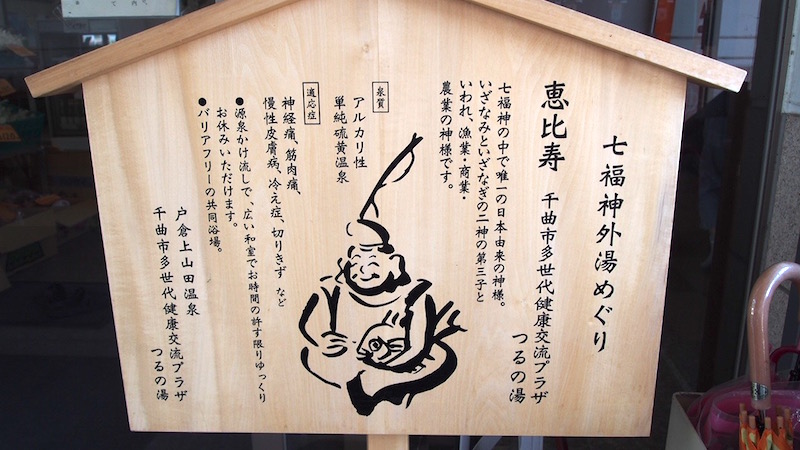 七福神外湯めぐり
恵比寿
千曲市多世代健康交流プラザ
つるの湯
七福神の中で唯一の日本由来の神様。
いざなみといざなぎの二神の第三子と
いわれ、漁業・商業・
農業の神様です。
泉質
アルカリ性
単純硫黄温泉
適応症
神経痛、筋肉痛、
慢性皮膚病、冷え症、切りきず など
●源泉かけ流しで、広い和室でお時間の許す限りゆっくり
お休みいただけます。
●バリアフリーの共同浴場。
戸倉上山田温泉
千曲市多世代健康交流プラザ
つるの湯